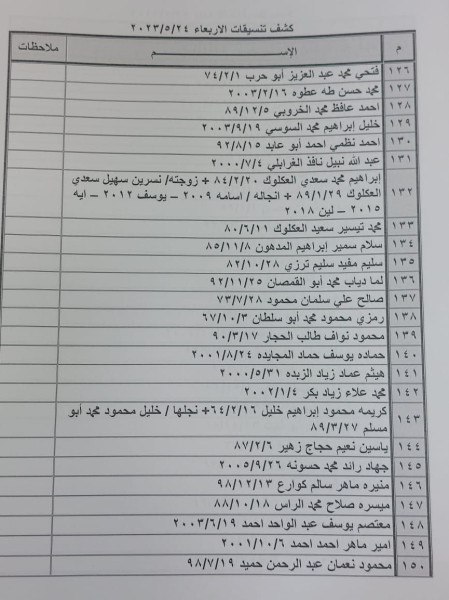 كشف تنسيقات الاربعاء ٢٠٢٣/٥/٢٤
م الإســـــم ملاحظات
١٢٦ فتحي محمد عبد العزيز أبو حرب ٧٤/٢/١
١٢٧ محمد حسن طه عطوه ٢٠٠٣/٢/١٦
١٢٨ احمد عافظ محمد الخروبي ٨٩/١٢/٥
١٢٩ خليل إبراهيم محمد السوسي ٢٠٠٣/٩/١٩
١٣٠ احمد نظمي احمد أبو عابد ٩٢/٨/١٥
١٣١ عبد الله نبيل نافذ الغرابلي ٢٠٠٠/٧/٤
١٣٢ إبراهيم محمد سعدي العكلوك ٨٤/٢/٢٠ + زوجته/ نسرين سهيل سعدي
العكلوك ٨٩/١/٢٩ + انجاله / اسامه ٢٠٠٩ – يوسف ٢٠١٢ – ايه
٢٠١٥ – لين ٢٠١٨
١٣٣ محمد تيسير سعيد العكلوك ٨٠/٦/١١
١٣٤ سلام سمير إبراهيم المدهون ٨٥/١١/٨
١٣٥ سليم مفيد سليم ترزي ٨٢/١٠/٢٨
١٣٦ لما دياب محمد أبو القمصان ٩٢/١١/٢٥
١٣٧ صالح علي سلمان محمود ٧٣/٧/٢٨
١٣٨ رمزي محمود محمد أبو سلطان ٦٧/١٠/٣
١٣٩ محمود نواف طالب الحجار ٩٠/٣/١٧
١٤٠ حماده يوسف حماد المجايده ٢٠٠١/٨/٢٤
١٤١ هيثم عماد زياد الزبده ٢٠٠٠/٥/٣١
١٤٢ محمد علاء زياد بكر ٢٠٠٢/١/٤
١٤٣ كريمه محمود إبراهيم خليل ٦٤/٢/١٦+ نجلها / خليل محمود محمد أبو
مسلم ٨٩/٣/٢٧
١٤٤ ياسين نعيم حجاج زهير ٨٧/٢/٦
١٤٥ جهاد رائد محمد حسونه ٢٠٠٥/٩/٢٦
١٤٦ منيره ماهر سالم كوارع ٩٨/١٢/١٣
١٤٧ ميسره صلاح محمد الراس ٨٨/١٠/١٨
١٤٨ معتصم يوسف عبد الواحد احمد ٢٠٠٣/٦/١٩
١٤٩ امير ماهر احمد احمد ٢٠٠١/١٠/٦
١٥٠ محمود نعمان عبد الرحمن حميد ٩٨/٧/١٩